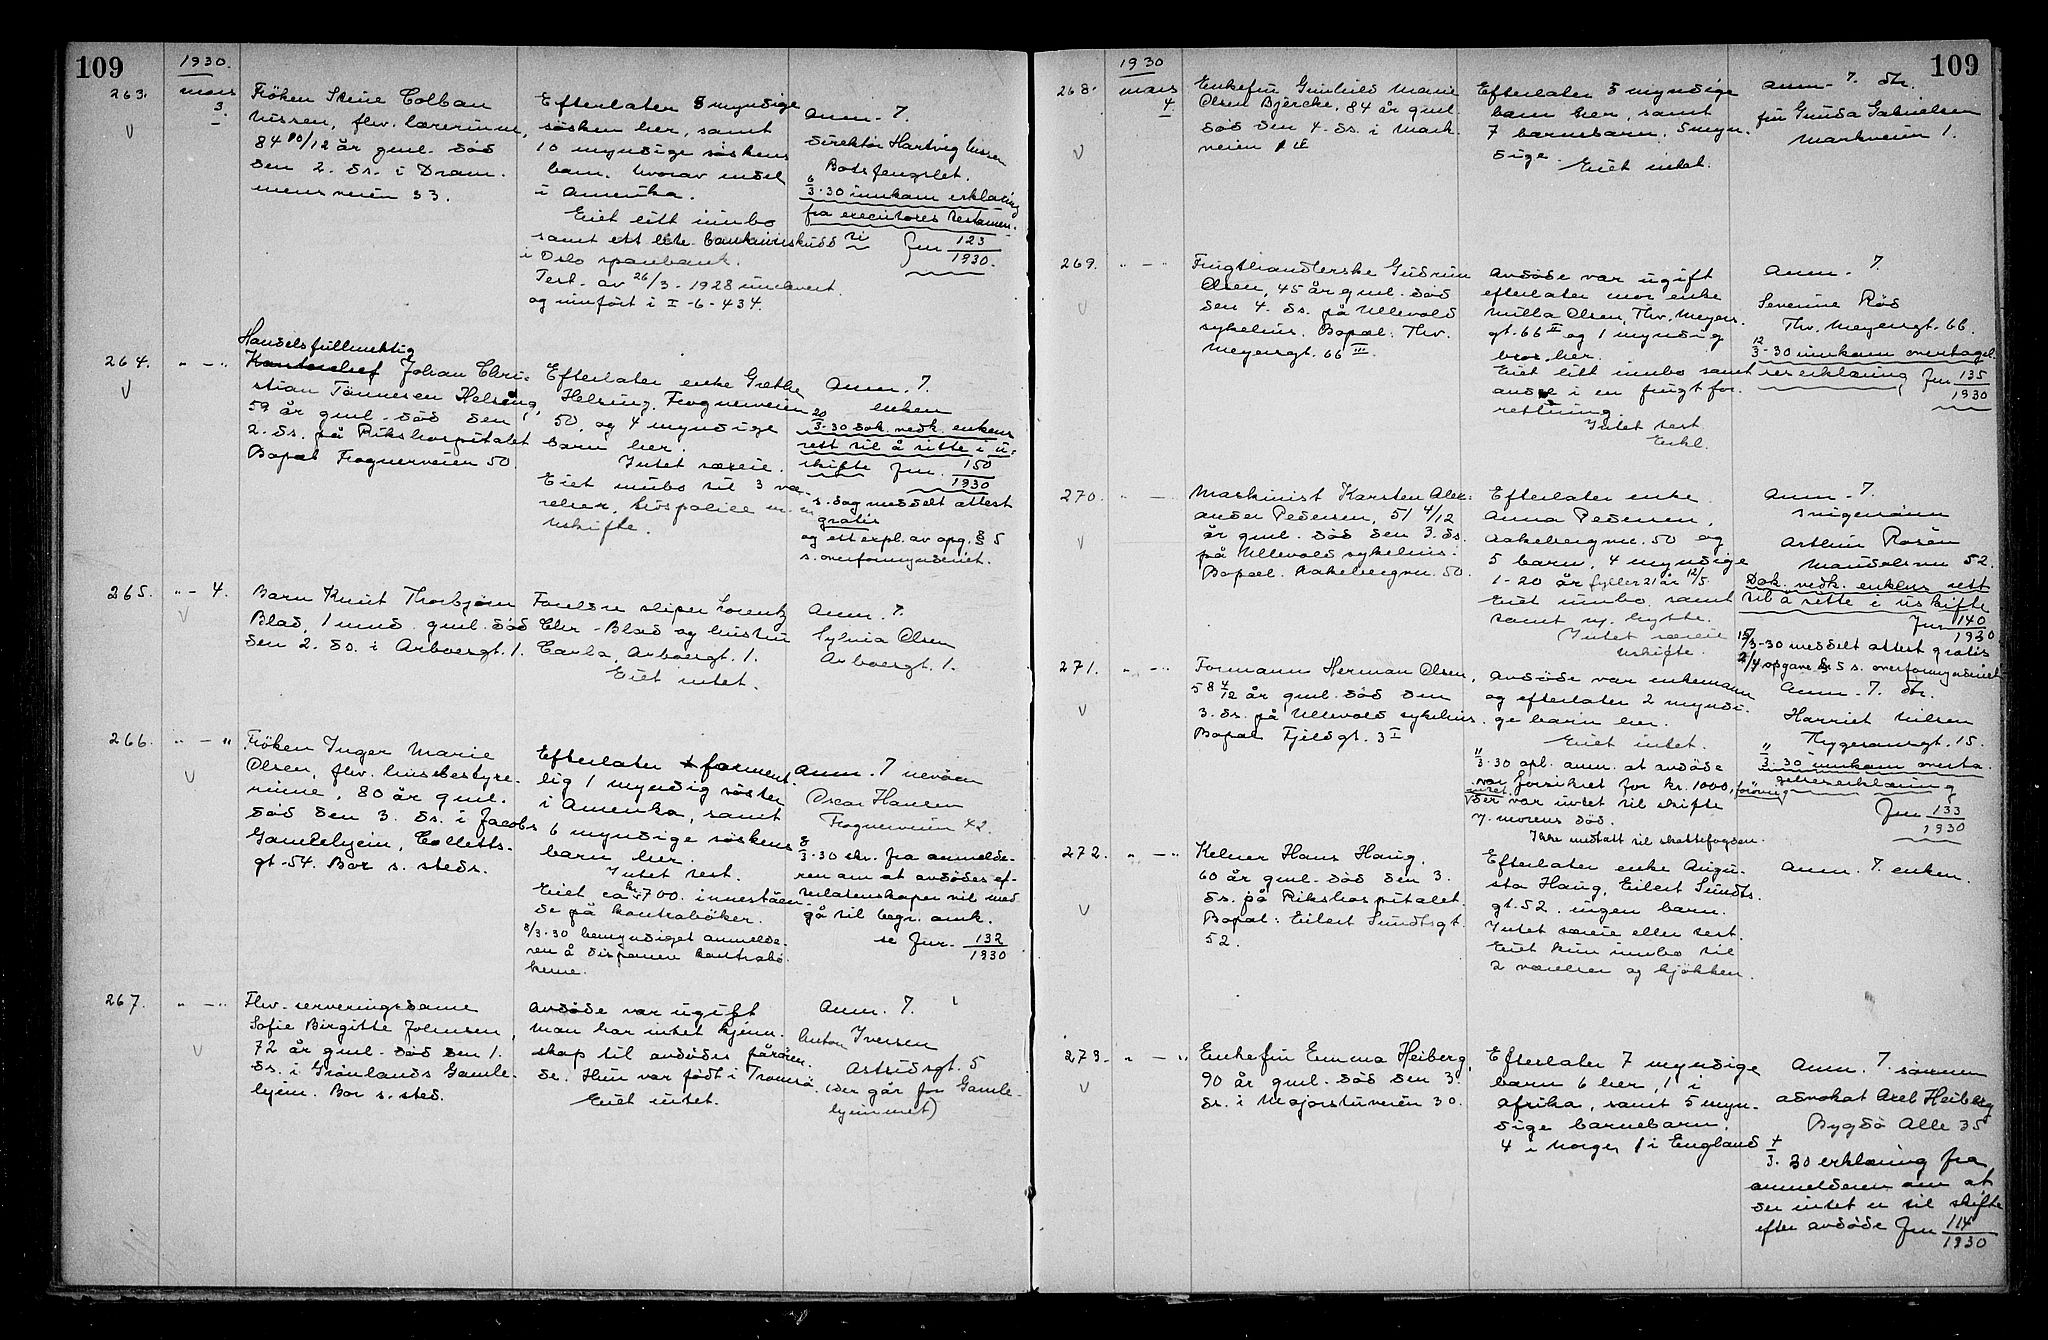 109
1930.
263.
mars
3.
Fröken Stine Colban
Nissen, fhv. lærerinne,
84 10/12 år gml. död
den 2. ds. i Dram-
mensveien 53.
Efterlater 5 myndige
søsken her, samt
10 myndige søskens
barn. hvorav endel
i Amerika.
Eiet litt innbo
samt ett lite bankinnskudd
i Oslo sparebank.
Test. av 26/3-1928 innlevert
og innført i I-6-434.
Anm. 7.
direktör Hartvig Nissen
Botsfengslet.
6/3-30 innkom erklæring
fra executores testamen-
ti
Jnr 123
1930.
264.
" — "
Handelsfullmektig
Kontorchef Johan Chri-
stian Tönnesen Helsing,
59 år gml. död den
2. ds. på Rikshospitalet
Bopæl Frognerveien 50.
Efterlater enke Grethe
Helsing, Frognerveien
50, og 4 myndige
barn her.
Intet særeie.
Eiet innbo til 3 væ-
relser, livspolice m.m
Uskifte.
Anm. 7.
enken
20/3-30 dok. vedk. enkens
rett til å sitte i u-
skifte Jnr. 150
1930
s. dag meddelt attest
gratis
og ett expl. av opg. § 5
s. overformynderiet.
265.
" — 4.
Barn Knut Thorbjørn
Blad, 1 mnd. gml. död
den 2. ds. i Arboesgt. 1.
Foreldre sliper Lorentz
Chr. Blad og hustru
Carla, Arboesgt. 1.
Eiet intet.
Anm. 7.
Sylvia Olsen
Arboesgt. 1.
266.
" — "
Fröken Inger Marie
Olsen, fhv. husbestyre-
rinne, 80 år gml.
död den 3. ds. i Jacobs
Gamlehjem, Colletts-
gt. 54. Bor s. steds.
Efterlater forment-
lig 1 myndig søster
i Amerika, samt
6 myndige søskens
barn her.
Intet test.
Eiet ca kr. 700. inneståen-
de på kontrabøker.
8/3-30 bemyndiget anmelde-
ren å disponere kontrabø-
kene.
Anm. 7 nevöen
Oscar Hansen
Frognerveien 42.
8/3-30 skr. fra anmelde-
ren om at avdødes ef-
terlatenskaper vil med
gå til begr. omk.
se Jnr. 132
1930
267.
" — "
Fhv. serveringsdame
Sofie Birgitte Johnsen,
72 år gml. död den 1.
ds. i Grønlands Gamle-
hjem. Bor s. sted.
Avdöde var ugift
man har intet kjenn-
skap til avdödes pårören-
de. Hun var født i Tromsø
Eiet intet.
Anm. 7.
Anton Iversen
Astridsgt. 5
(der går for Gamle-
hjemmet)
109
1930
268.
mars
4.
Enkefru Gunhild Marie
Olsen Bjercke, 84 år gml.
död den 4. ds. i Mark-
veien 1
Efterlater 5 myndige
barn her, samt
7 barnebarn, 5 myn-
dige.
Eiet intet.
Anm. 7. dtr.
fru Gunda Gabrielsen
Markveien 1.
269.
" — "
Frugthandlerske Gudrun
Olsen, 45 år gml. död
den 4. ds. på Ullevold
sykehus. Bopæl: Thv.
Meyersgt. 66 III.
Avdöde var ugift
efterlater mor enke
Milla Olsen, Thv. Meyers-
gt. 66 II og 1 myndig
bror her.
Eiet litt innbo samt
andel i en frugtfor-
retning.
Intet test.
Enkl.
Anm. 7.
Severine Röd
Thv. Meyersgt. 66.
12/3-30 innkom overtagel-
seserklæring Jnr 135
1930
270.
" — "
Maskinist Karsten Alex-
ander Pedersen, 51 4/12
år gml. död den 3. ds.
på Ullevold sykehus.
Bopæl. Aakebergvn. 50.
Efterlater enke
Anna Pedersen,
Aakebergvn. 50 og
5 barn, 4 myndige
1-20 år fyller 21 år 12/5.
Eiet innbo samt
samt ny. hytte.
Intet særeie
Uskifte.
Anm. 7.
svigersönn
Arthur Rosén
Mandalsvn 52.
Dok. vedk. enkens rett
til å sitte i uskifte
Jnr 140
1930
15/3-30 meddelt attest gratis
2/4 opgave § 5 s. overformynderiet
271.
" — "
Formann Herman Olsen,
58 4/12 år gml. död den
3. ds. på Ullevold sykehus.
Bopæl Fjeldgt. 3 I
Avdöde var enkemann
og efterlater 2 myndi-
ge barn her.
Eiet intet.
11/3-30 opl. anm. at avdöde
var forsikret for kr. 1000, forövrig
der var intet til skifte
v. morens död.
Ikke medtatt til skattefogden.
Anm. 7. dtr.
Harriet Nilsen
Thygesonsgt. 15.
11/3-30 innkom overta-
gelseserklæring
Jnr 133
1930
272.
" — "
Kelner Hans Haug.
60 år gml. död den 3.
ds. på Rikshospitalet.
Bopæl: Eilert Sundtsgt
52.
Efterlater enke Augu-
sta Haug, Eilert Sundts-
gt. 52. ingen barn.
Intet særeie eller test.
Eiet kun innbo til
2 værelser og kjøkken.
Anm. 7. enken.
273.
" — "
Enkefru Emma Heiberg,
90 år gml. död den 3.
ds. i Majorstuveien 30.
Efterlater 7 myndige
barn 6 her, 1 i
Afrika, samt 5 myn-
dige barnebarn,
4 i Norge, 1 i England
Anm. 7. sønnen
advokat Axel Heiberg
Bygdö Alle 35
+/3. 30 erklæring fra
anmelderen om at
der intet er til skifte
efter avdöde Jnr 114
1930